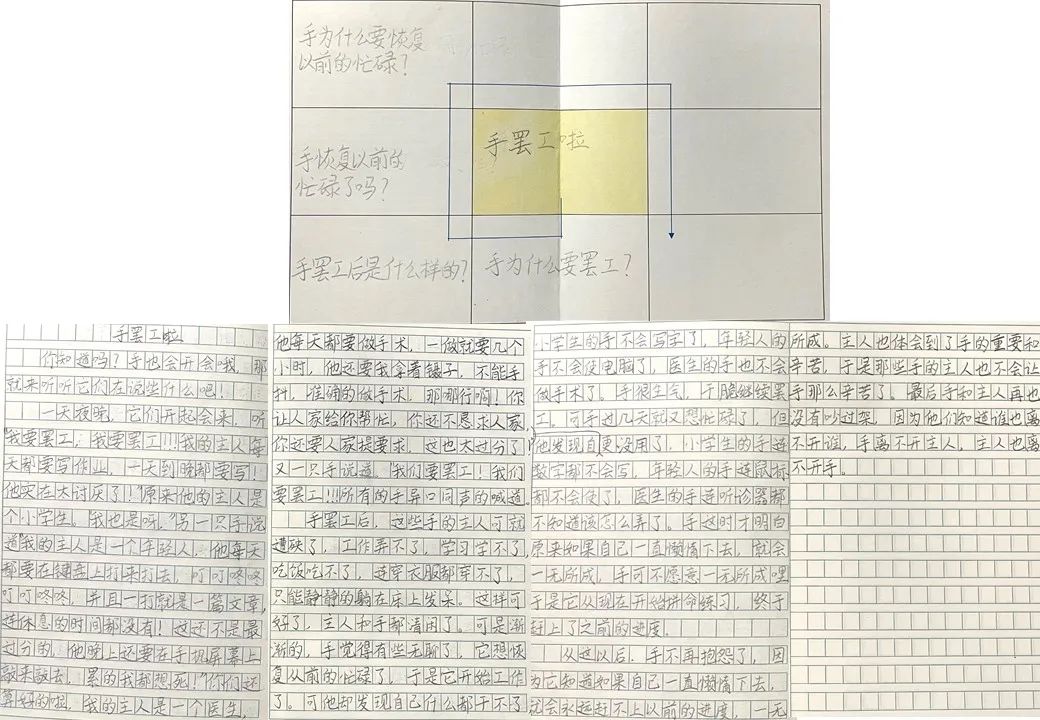 手为什么要恢复
以前的忙碌?
手罢工啦
手恢复以前的
忙碌了吗?
手罢工后是什么样的?
手为什么要罢工?
手罢工啦
你知道吗?手也会开会哦,那
就来听听它们在说些什么吧!
一天夜晚,它们开起会来,听
"我要罢工,我要罢工!!!我的主人每
天都要写作业,一天到晚都要写!
他实在太讨厌了!"原来他的主人是
个小学生。"我也是呀,"另一只手说
道"我的主人是一个年轻人,他每天
都要在键盘上打来打去,叮叮咚咚
叮叮咚咚,并且一打就是一篇文章,
连休息的时间都没有!这还不是最
过分的,他晚上还要在手机屏幕上
敲来敲去,累的我都想死!"你们还
算好的啦,我的主人是一个医生,
他每天都要做手术,一做就要几个
小时,他还要我拿着镊子,不能手
抖,准确的做手术,那哪行啊!你
让人家给你帮忙,你还不恳求人家,
你还要人家提要求,这也太过分了
又一只手说道"我们要罢工!我们
要罢工!!!所有的手异口同声的喊道
手罢工后,这些手的主人可就
遭殃了,工作弄不了,学习学不了,
吃饭吃不了,连穿衣服都穿不了,
只能静静的躺在床上发呆。这样可
好了,主人和手都清闲了。可是渐
渐的,手觉得有些无聊了,它想恢
复从前的忙碌了,于是它开始工作
了。可他却发现自己什么都干不了
小学生的手不会写字了,年轻人的
手不会使电脑了,医生的手也不会
做手术了。手很生气,干脆继续罢
工。可手过几天就又想忙碌了,但
他发现自更没用了,小学生的手连
数字都不会写,年轻人的手连鼠标
都不会使了,医生的手连听诊器都
不知道该怎么弄了。手这时才明白
原来如果自己一直懒惰下去,就会
一无所成,手可不愿意一无所成哩
于是它从现在开始拼命练习,终于
赶上了之前的进度。
从这以后,手不再抱怨了,因
为它知道如果自己一直懒惰下去,
就会永远赶不上以前的进度,一无
所成。主人也体会到了手的重要和
辛苦,于是那些手的主人也不会让
手那么辛苦了。最后手和主人再也
没有吵过架,因为他们知道谁也离
不开谁,手离不开主人,主人也离
不开手。